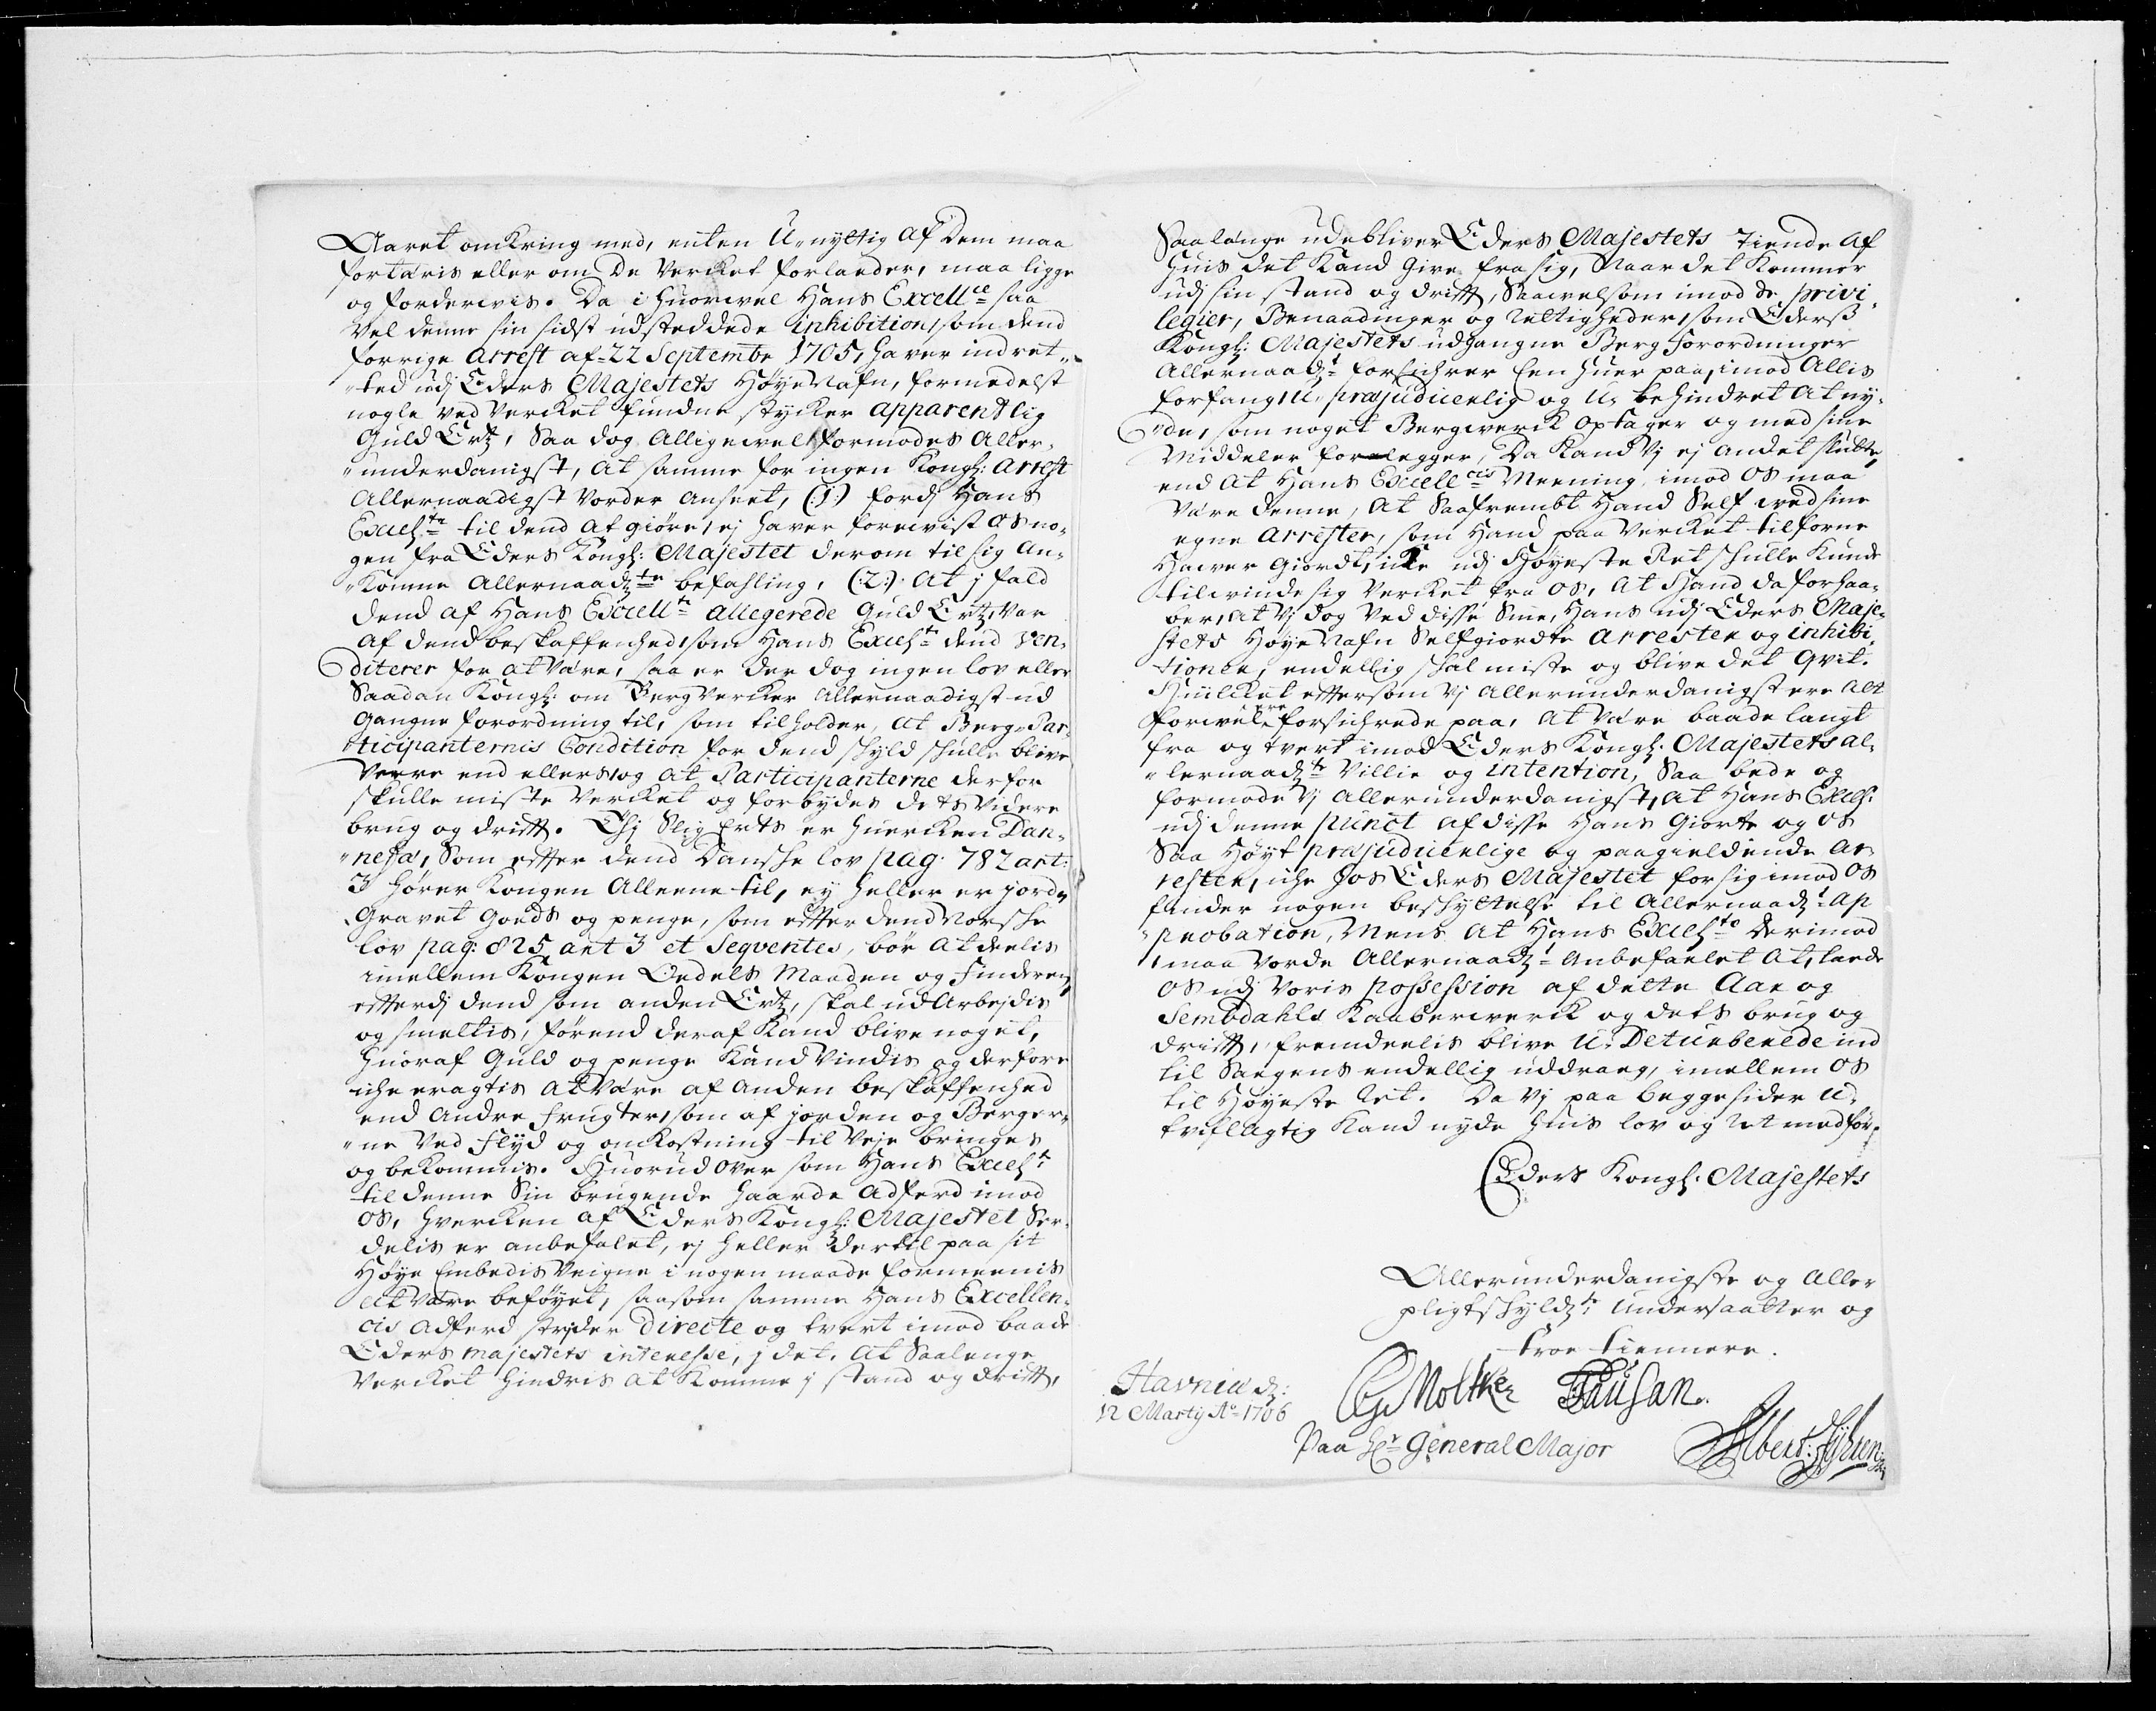 Aaret omkring med, enten U-nyttig af Dem maa
fortæris eller om De Verket forlader, maa ligge
og forderwis. Da i huorvel Hans Excell.ce saa
Vel denne sin sidst udsteddede inhibition, som dend
forrige Arrest af 22 Septembr 1705, haver indret-
ted udj Eders Majestets Høye Nafn, formedelst
nogle ved Verket fundne stycker apparentlig
Guld Ertz, Saa dog Alligewel formodes Aller-
underdanigst, At samme for ingen Kongl: Arrest
Allernaadigst vorder Anseet, (:1:) fordj Hans
Excel.tz til dend at giøre, ej haver forewist os no-
gen fra Eders Kongl: Majestet derom til sig An-
komne Allernaad.te befahling, (:2:) At j fald
dend af Hans Excell.tz allegerede Guld Ertz, Var
af dend beskaffenhed, som Hans Excel.tz dend ven-
diterer for at være, saa er der dog ingen lov eller
Saadan Kongl: om Berg Vercker Allernaadigst ud
Gangne forordning til, som tilholder, At Berg-Par-
ticipanternis Condition for dend skyld skulle blive
Verre end ellers, og At Participanterne derfor
skulle miste Verket og forbydes dets Videre
brug og drifft. Thj Slig Erts er huercken Dan-
nefæ, Som effter dend Danske lov pag: 782 art:
3 hører Kongen Alleene til, ey heller er jord-
Gravet Goeds og penge, som effter dend Norske
lov pag: 825 art 3 et Seqventes, bør At deelis
imellem Kongen Oedels Manden og Finderen,
efterdj dend som anden Ertz, skal udArbejdis
og smeltis, førend deraf Kand blive noget,
huoraf Guld og penge Kand Vindis og derfore
iche eragtis At være af Anden beskaffenhed
end Andre Frugter, som af jorden og Berger-
ne Ved Flyd og omkostning til Veje bringes
og bekommis. Huorudover som Hans Excel.tz
til denne Sin brugende haarde Adferd imod
os, hvercken af Eders Kongl: Majestet Ser-
delis er anbefalet, ej heller dertil paa sit
Høye Embedis Veigne i nogen maade formeenis
At være beføyet, saasom samme Hans Excellen-
cis Adferd strider directe og tvert imod baade
Eders Majestets interesse, j det, At Saalenge
Verket hindris At Komme j stand og drifft,
Saalænge udebliver Eders Majestets Tiende Af
huis det Kand Give fra sig, Naar det Kommer
udj sin stand og drifft, Saavelsom imod de privi-
legier, Benaadinger og Rettigheder, som Ederss
Kongl: Majestets udgangne Berg Forordninger
Allernaad.t forsichrer Een huer paa, imod Allis
forfang, U-præjudicerlig og U-behindret At ny-
de, som noget Bergwerck optager og med sine
Middeler forlegger, Da Kand Vj ej andet slutte,
end At Hans Excell.cis Meening imod os maa
Være denne, At Saafrembt Hand Self ved sine
egne Arrester, som Hand paa Verket tilforne
Hawer Giordt, icke udj Høyeste Ret skulle Kunde
tilvinde sig Verket fra os, At Hand da forhaa-
ber, At Vj dog Ved disse Sine, Hans udj Eders Maje-
stets Høye Nafn Selfgiordte Arrester og inhibi-
tioner, endellig skal miste og blive det Qvit.
Huilcket efftersom Vj Allerunderdanigst ere Alt
forvel ere forsichrede paa, At Være baade langt
fra og tvert imod Eders Kongl: Majestets al-
lernaad.te Villie og intention, Saa bede og
formode Vj Allerunderdanigst, At Hans Excel:
udj denne punct af disse Hans Giorte og os
Saa Høyt præjudicerlige og paagieldende Ar-
rester, iche hos Eders Majestet for sig imod os
finder nogen beskyttelse til Allernaad.t Ap
probation, Mens At Hans Excel.tz Derimod
maa Vorde Allernaad.t Anbefaelet At, lade
os udj Voris possession af dette Aar og
Sembdahls Kaaberwerck og dets brug og
drifft, fremdeelis blive U-Deturberede ind
til Saegens endellig uddrag, imellem os
til Høyeste Ret. Da Vj paa begge sider U-
tvilagtig Kand nyde huis lov og Ret medfør.
Eders Kongl: Majestets
Allerunderdanigste og Aller
pligtskyld.te Undersaatter og
troe tiennere.
Havniæ d:
12 Martij Ao 1706
CG Moltke
Paa Hr General Major